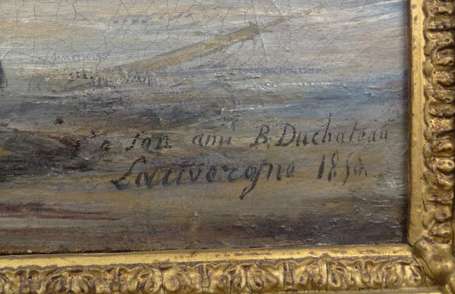 a son ami B. Duchateau
Lauvergne 18